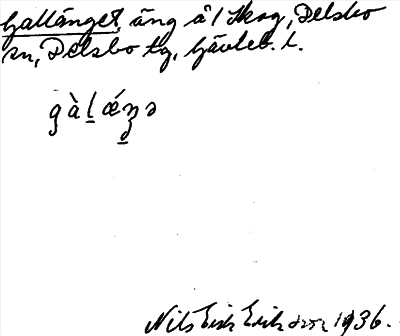 Gallänget, äng å 1 Skog, Delsbo
sn, Delsbo tg, Gävleb. l.
gàlǽnə
Nils Erik Eriksson 1936.